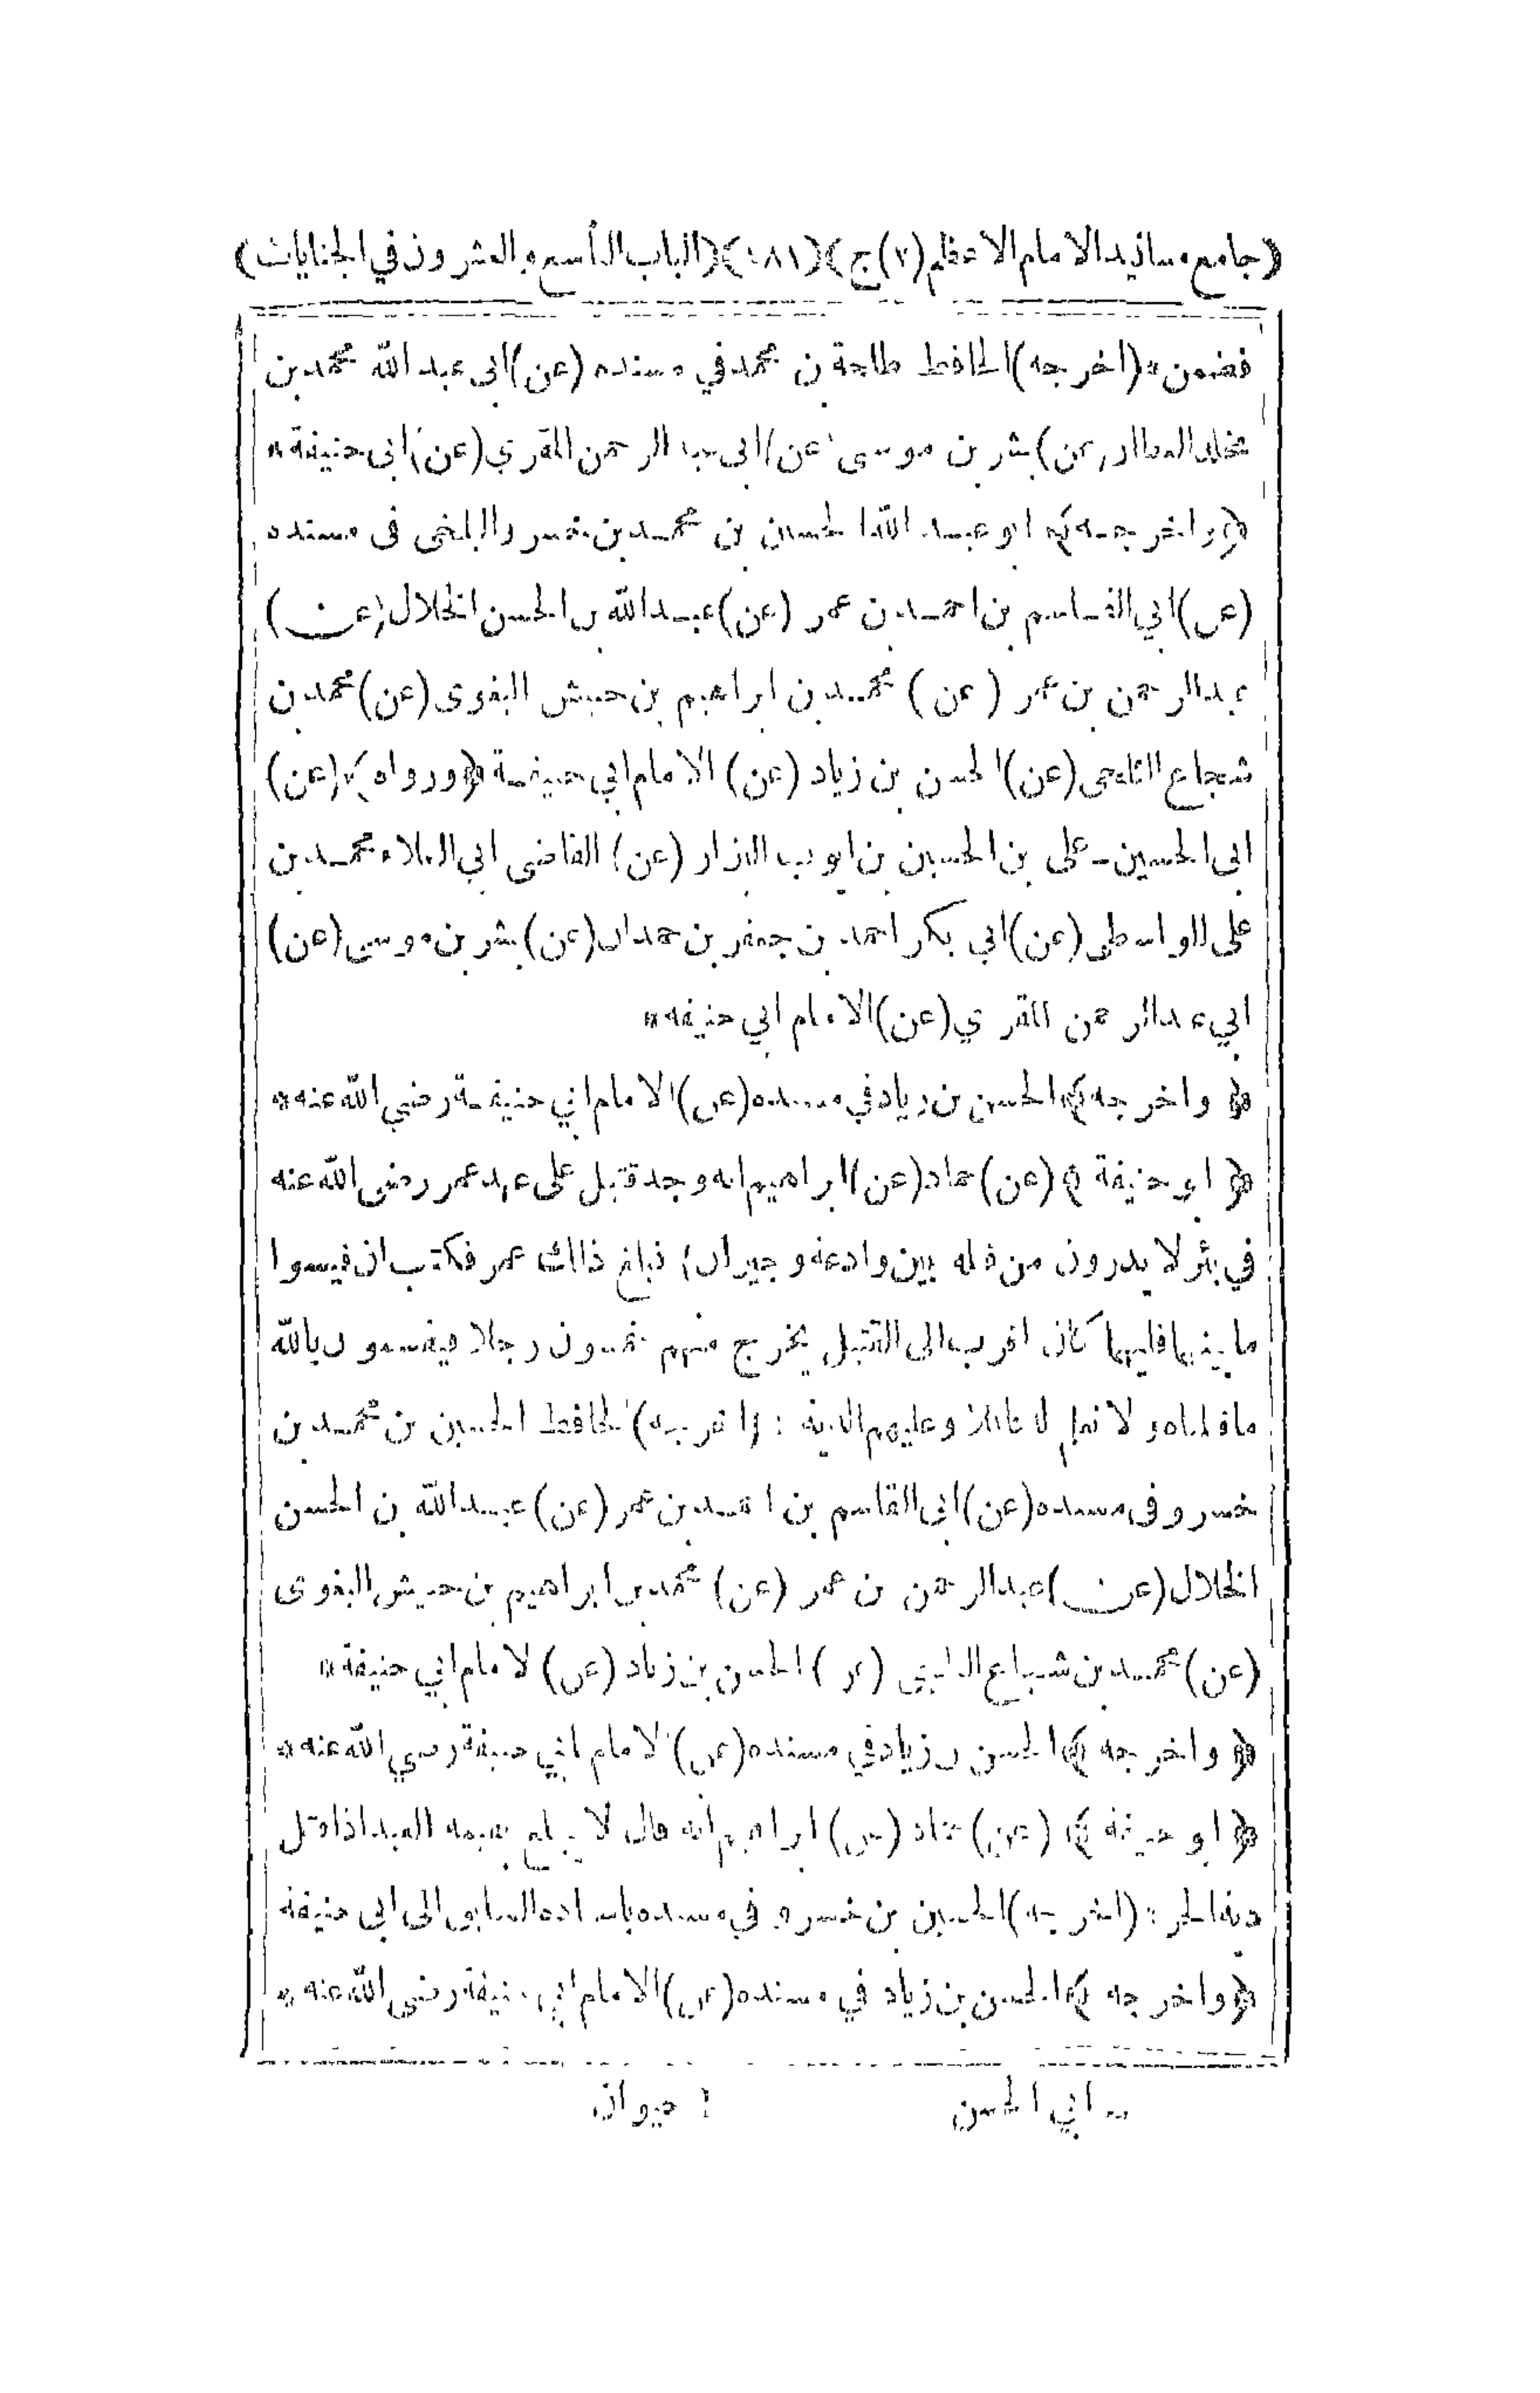 (جامع مسانيد الامام الاعظم (٢) ج) (١٨١) (الباب التاسع والعشرون في الجنايات)
فضمن * (اخرجه) الحافظ طلحة بن محمد في مسنده (عن) ابى عبد الله محمد بن
مخلد العطار (عن) بشر بن موسى (عن) ابى عبد الرحمن المقري (عن) ابى حنيفة *
﴿واخرجه﴾ ابو عبد الله الحسين بن محمد بن خسرو البلخى فى مسنده
(عن) ابي القاسم بن احمد بن عمر (عن) عبد الله بن الحسن الخلال (عن)
عبد الرحمن بن عمر (عن) محمد بن ابراهيم بن حبيش البغوى (عن) محمد بن
شجاع الثلجى (عن) الحسن بن زياد (عن) الامام ابي حنيفة ﴿ورواه﴾ (عن)
ابى الحسين ـ على بن الحسين بن ايوب البزار (عن) القاضى ابي العلاء محمد بن
على الواسطى (عن) ابي بكر احمد بن جعفر بن حمدان (عن) بشر بن موسى (عن)
ابي عبد الرحمن المقري (عن) الامام ابي حنيفه *
﴿واخرجه﴾ الحسن بن زياد في مسنده (عن) الامام ابي حنيفة رضي الله عنه *
﴿ابو حنيفة﴾ (عن) حماد (عن) ابراهيم انه وجد قتيل على عهد عمر رضى الله عنه
في بئر لا يدرون من قتله بين وادعة و جيران ! فبلغ ذالك عمر فكتب ان قيسوا
ما بينهما فايهما كان اقرب الى القتيل يخرج منهم خمسون رجلا فيقسمون بالله
ما قتلناه ولا نعلم له قاتلا وعليهم الدية : (اخرجه) الحافظ الحسين بن محمد بن
خسرو فى مسنده (عن) ابى القاسم بن احمد بن عمر (عن) عبد الله بن الحسن
الخلال (عن) عبد الرحمن بن عمر (عن) محمد بن ابراهيم بن حبيش البغوى
(عن) محمد بن شجاع الثلجى (عن) الحسن بن زياد (عن) الامام ابي حنيفة *
﴿واخرجه﴾ الحسن بن زياد في مسنده (عن) الامام ابي حنيفة رضي الله عنه *
﴿ابو حنيفة﴾ (عن) حماد (عن) ابراهيم انه قال لا يبلغ بقيمة العبد اذا قتل
دية الحر : (اخرجه) الحسين بن خسرو في مسنده باسناده السابق الى ابى حنيفة
﴿واخرجه﴾ الحسن بن زياد في مسنده (عن) الامام ابي حنيفة رضى الله عنه *
ـ ابي الحسن ! حيوان